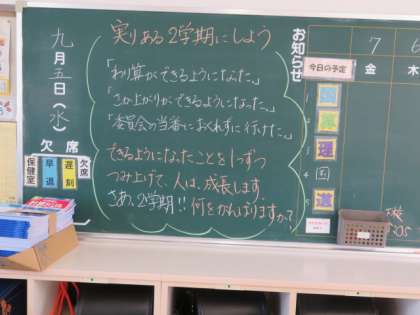 九月五日（水）
欠席
保健室
早退
遅刻
欠席
実りある2学期にしよう
「わり算ができるようになった。」
「さか上がりができるようになった。」
「委員会の当番におくれずに行けた。」
できるようになったことを1つずつ
つみ上げて、人は、成長します。
さあ、2学期!!何をがんばりますか?
お知らせ
今日の予定
1
2
3 理
4
5 道
7
金
6
木